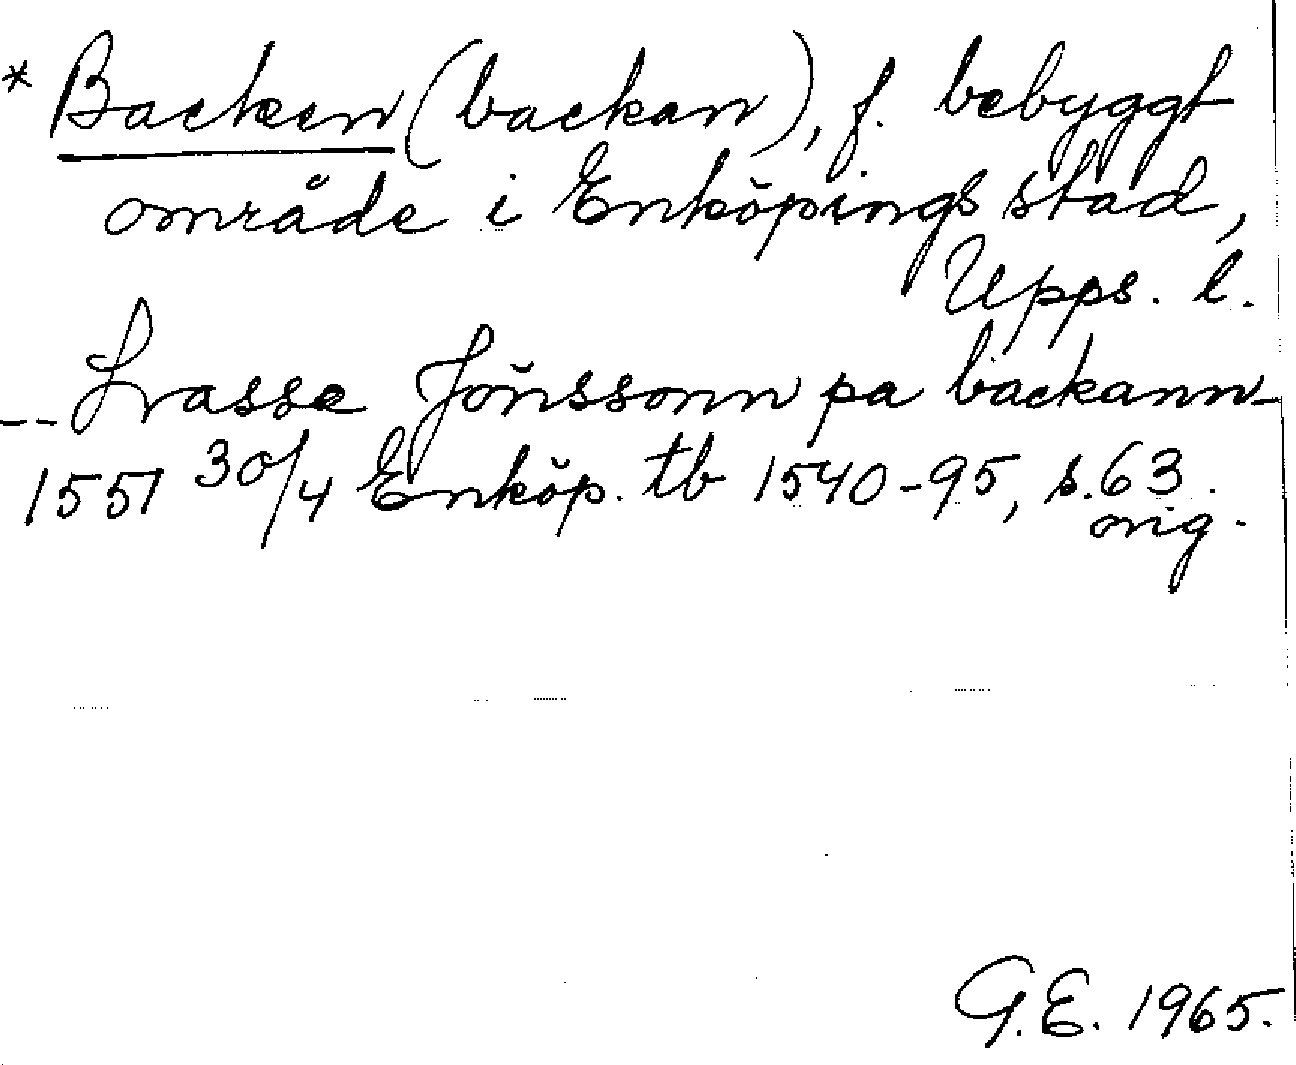 * Backen (backan), f. bebyggt
område i Enköpings stad,
Upps. l.
-- Lrasse Jönssonn pa backann-
1551 30/4 Enköp. tb 1540-95, s. 63.
orig.
G.E. 1965.